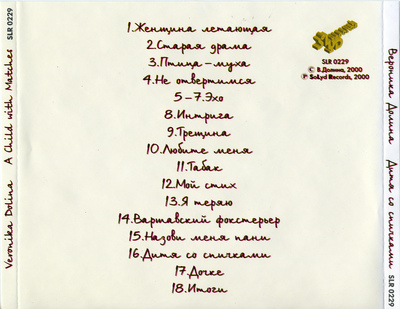 Veronika Dolina A Child with Matches SLR 0229
1.Женщина летающая
2.Старая драма
3.Птица-муха
4.Не отвертимся
5-7.Эхо
8.Интрига
9.Трещина
10.Любите меня
11.Табак
12.Мой стих
13.Я теряю
14.Варшавский фокстерьер
15.Назови меня пани
16.Дитя со спичками
17.Дочке
18.Итоги
SLR 0229
© В.Долина, 2000
℗ SoLyd Records, 2000
Вероника Долина Дитя со спичками SLR 0229